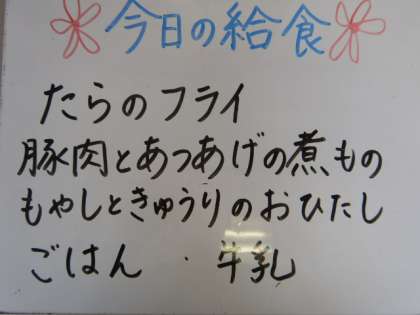 今日の給食
たらのフライ
豚肉とあつあげの煮もの
もやしときゅうりのおひたし
ごはん ・ 牛乳